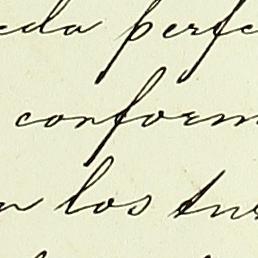 eda perfe
conform
n los tur